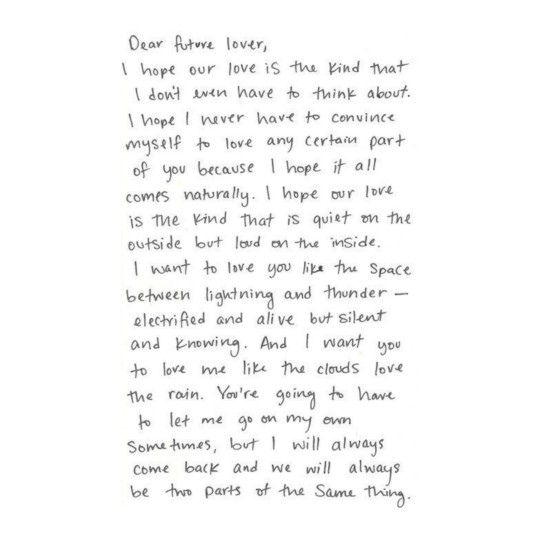 Dear future lover,
I hope our love is the kind that
I don't even have to think about.
I hope I never have to convince
myself to love any certain part
of you because I hope it all
comes naturally. I hope our love
is the kind that is quiet on the
outside but loud on the inside.
I want to love you like the space
between lightning and thunder —
electrified and alive but silent
and knowing. And I want you
to love me like the clouds love
the rain. You're going to have
to let me go on my own
sometimes, but I will always
come back and we will always
be two parts of the same thing.